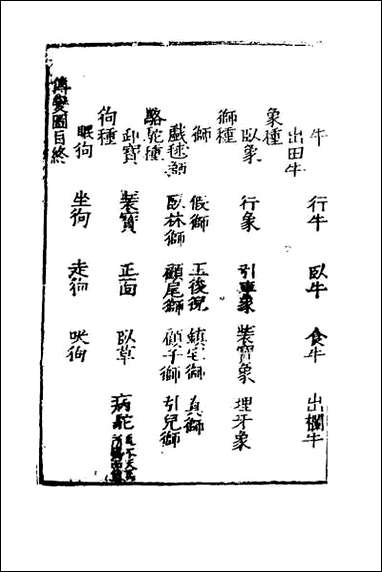 牛　行牛　臥牛　食牛　出欄牛
出田牛
象種
臥象　行象　引車象　裝寶象　埋牙象
獅種
獅　假獅　王後猊　鎮宅獅　真獅
戲毬獅　臥林獅　顧尾獅　顧子獅　引兒獅
駱駝種
卸寶　裝寶　正面　臥草　病駝
狗種
眠狗　坐狗　走狗　吠狗
傳變圖目終